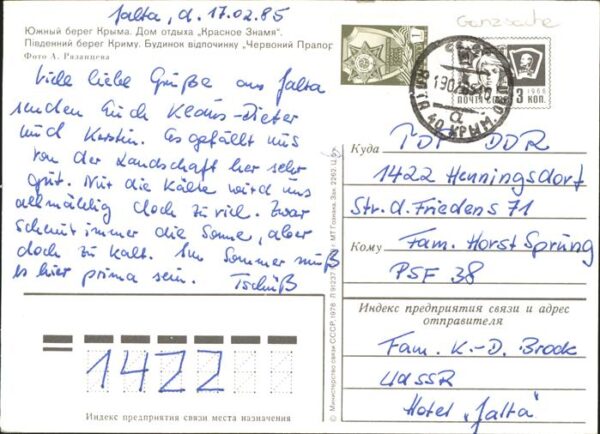 Jalta, d. 17.02.85
Ganzsache
Южный берег Крыма. Дом отдыха „Красное Знамя".
Південний берег Криму. Будинок відпочинку „Червоний Прапор
Фото А. Рязанцева
Viele liebe Grüße aus Jalta
senden Euch Klaus-Dieter
und Kerstin. Es gefällt uns
von der Landschaft her sehr
gut. Nur die Kälte wird uns
allmählig doch zu viel. Zwar
scheint immer die Sonne, aber
doch zu kalt. Im Sommer muß
es hier prima sein. Tschüß
1422
Индекс предприятия связи места назначения
© Министерство связи СССР, 1978
МТ Гознака. Зак.
1
ПОЧТА СССР
1966
3 коп.
ЯЛТА
КРЫМ.
Куда
DDR
1422 Henningsdorf
Str. d. Friedens 71
Кому
Fam. Horst Sprung
PSF 38
Индекс предприятия связи и адрес
отправителя
Fam. K.-D. Brock
UdSSR
Hotel „Jalta"